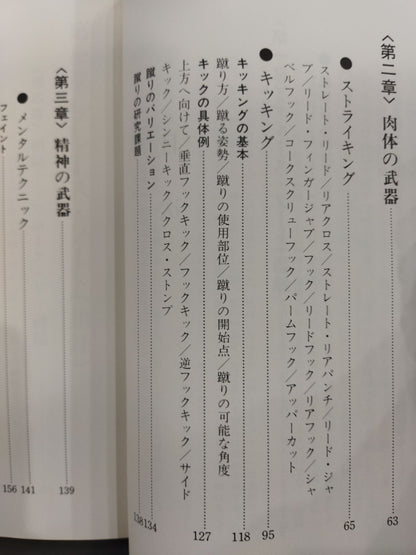 〈第二章〉肉体の武器……63
●ストライキング……65
ストレート・リード／リアクロス／ストレート・リアパンチ／リード・ジャ
ブ／リード・フィンガージャブ／フック／リードフック／リアフック／シャ
ベルフック／コークスクリューフック／パームフック／アッパーカット
●キッキング……95
キッキングの基本……118
蹴り方／蹴る姿勢／蹴りの使用部位／蹴りの開始点／蹴りの可能な角度
キックの具体例……127
上方へ向けて／垂直フックキック／フックキック／逆フックキック／サイド
キック／シンニーキック／クロス・ストンプ
蹴りのバリエーション……134
蹴りの研究課題……138
〈第三章〉精神の武器……139
●メンタルテクニック……141
フェイント……156